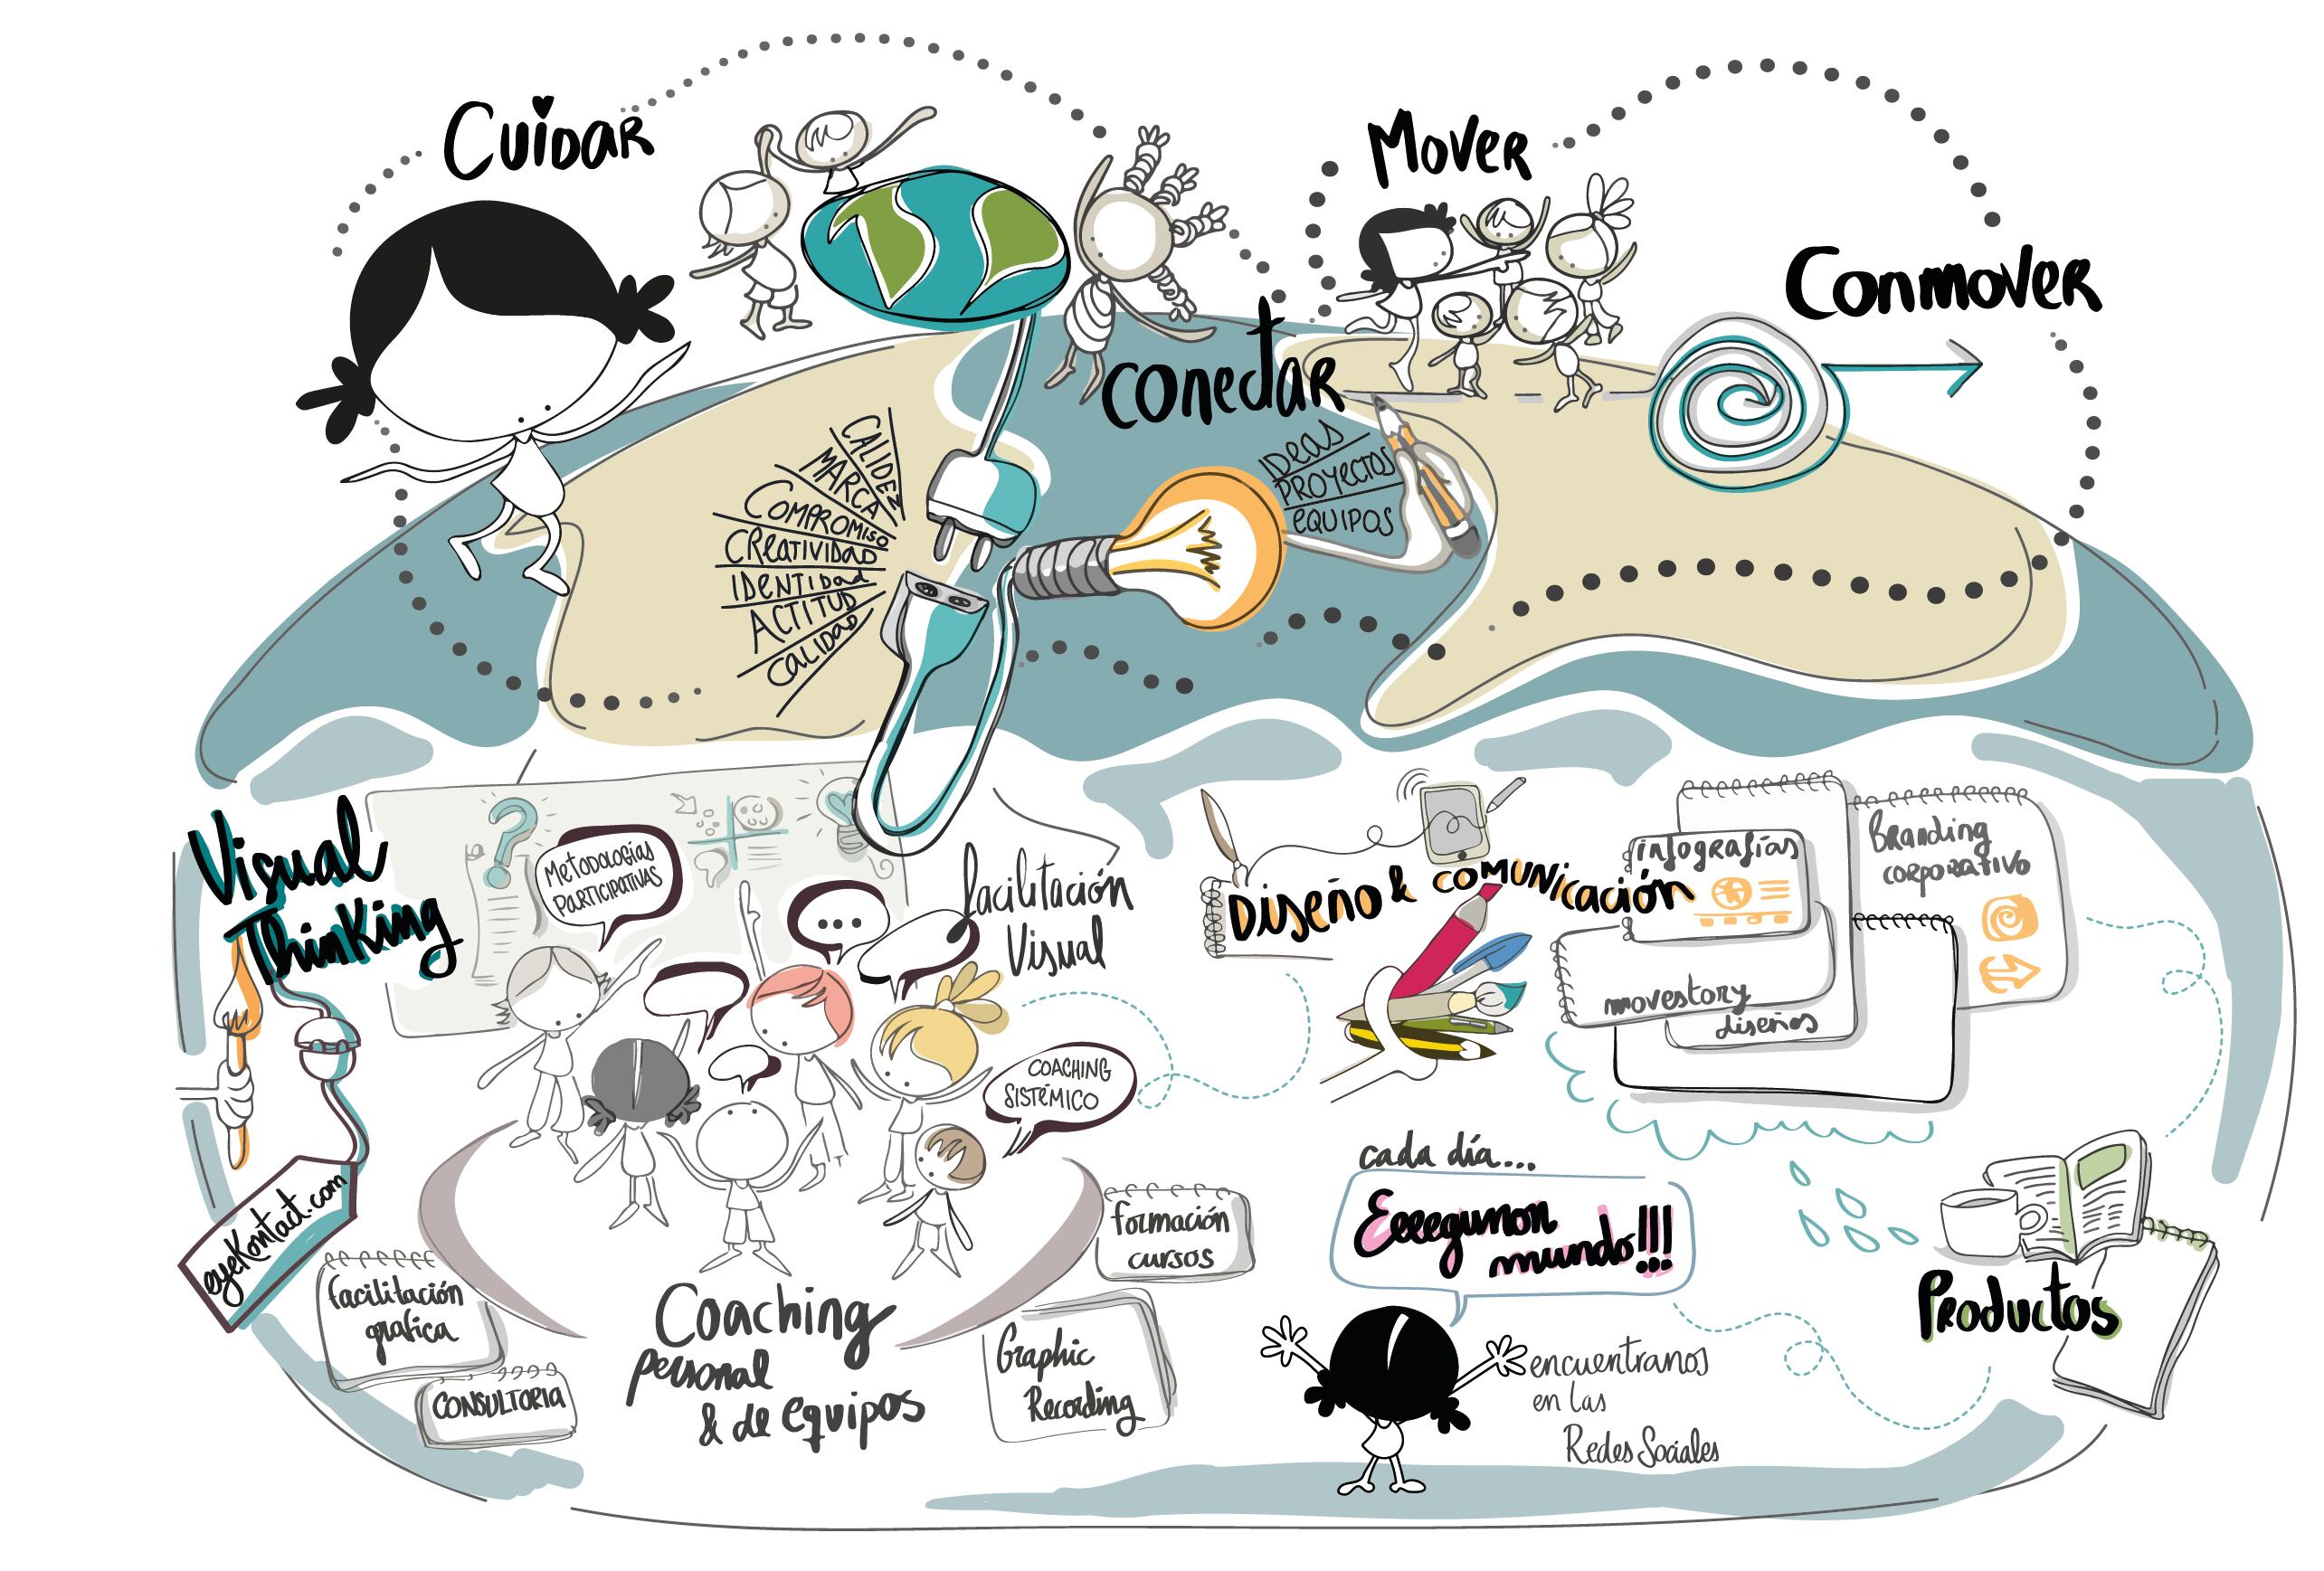 Cuidar
Mover
Conmover
conectar
CALIDEZ
MARCA
COMPROMISO
CREATIVIDAD
IDENTIDAD
ACTITUD
CALIDAD
IDeas
PROYECTOS
eQUIPOS
Visual
ThinKing
METODOLOGÍAS
PARTICIPATIVAS
...
facilitación
Visual
COACHING
SISTÉMICO
DISEÑO & COMUNICACIÓN
infografías
Branding
corporativo
movestory
diseños
eyeKontact.com
facilitación
grafica
CONSULTORIA
Coaching
personal
& de equipos
formación
cursos
Graphic
Recording
cada día...
Eeeegunon
mundo!!!
encuentranos
en las
Redes Sociales
PRODUCTOS